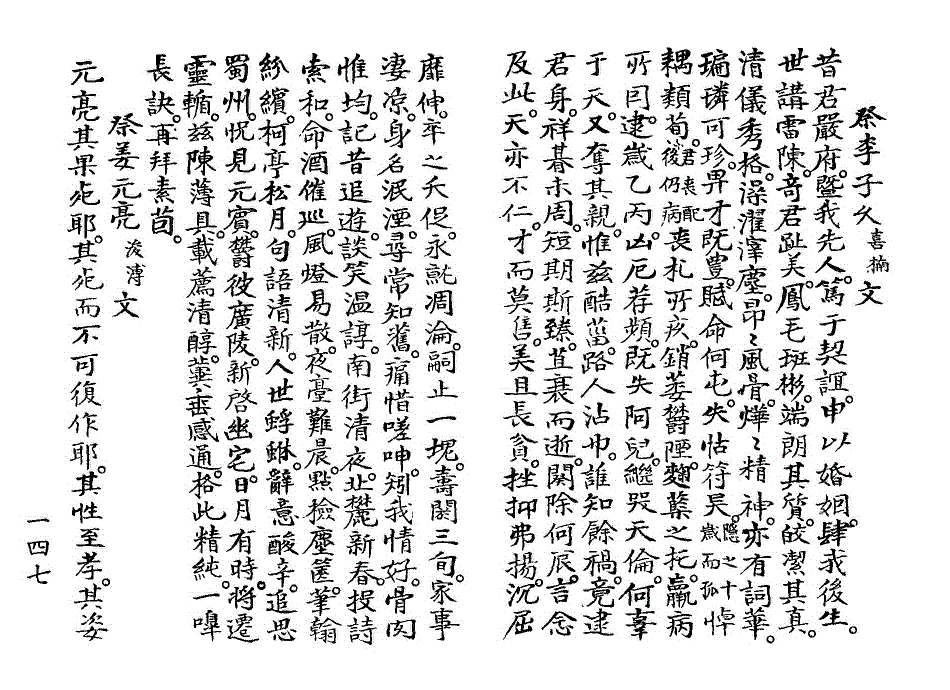 祭李子久喜楠文
昔君嚴府。曁我先人。篤于契誼。申以婚姻。肆我後生。
世講雷陳。奇君趾美。鳳毛斑彬。端朗其質。皎潔其真。
清儀秀格。澡濯滓塵。昂〻風骨。燁〻精神。亦有詞華。
㻞璘可珍。畀才旣豊。賦命何屯。失怙符吳。隱之十歲而孤悼
耦類荀。君喪配後仍病喪札所疚。銷萎欝堙。麴蘖之托。羸病
所因。逮歲乙丙。凶厄荐頻。旣失阿兒。繼哭天倫。何辜
于天。又奪其親。惟玆酷菑。路人沾巾。誰知餘禍。竟逮
君身。祥朞未周。短期斯臻。苴衰而逝。闋除何辰。言念
及此。天亦不仁。才而莫售。美且長貧。挫抑弗揚。沉屈
靡伸。卒之夭促。永就凋淪。嗣止一塊。壽閼三旬。家事
凄凉。身名泯湮。尋常知舊。痛惜嗟呻。矧我情好。骨肉
惟均。記昔追遊。談笑溫諄。南街清夜。北麓新春。投詩
索和。命酒催巡。風燈易散。夜臺難晨。點檢塵篋。華翰
紛繽。柯亭松月。句語清新。人世蜉蝣。辭意酸辛。追思
蜀州。怳見元賓。欝彼廣陵。新啓幽宅。日月有時。將遷
靈輴。玆陳薄具。載薦清醇。冀垂感通。格此精純。一嘷
長訣。再拜素茵。
祭姜元亮浚溥文
元亮其果死耶。其死而不可復作耶。其性至孝。其姿
一四七